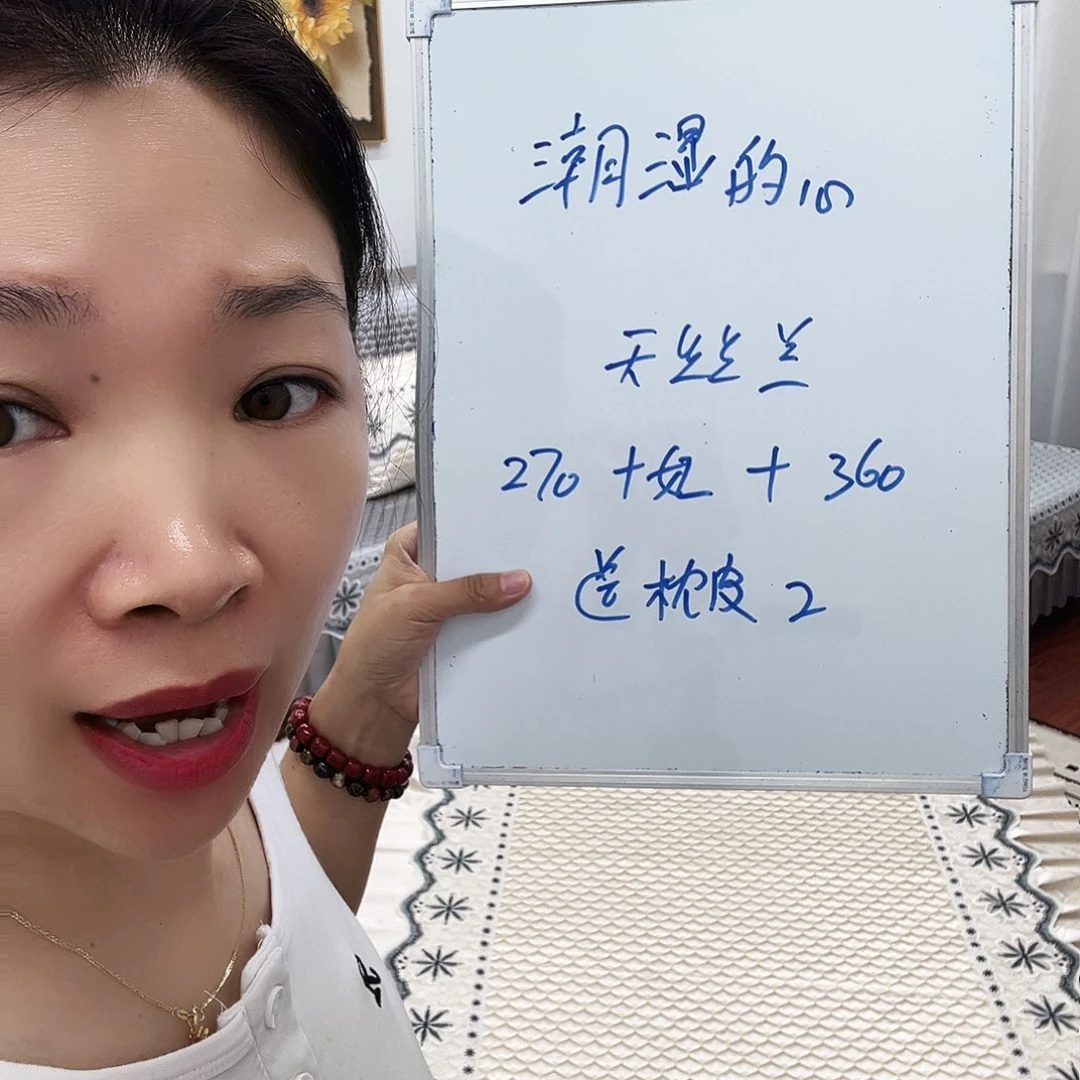 潮湿的心
天丝丝兰
270+妃+360
送枕皮2